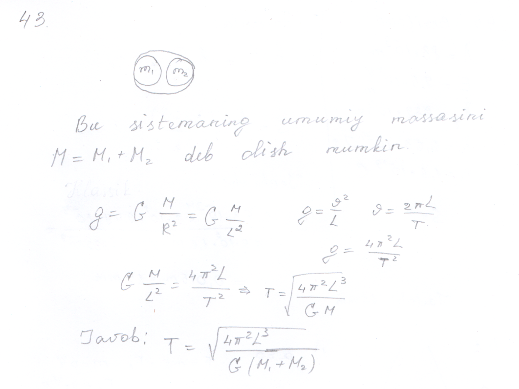 43.
m₁ m₂
Bu sistemaning umumiy massasini
M = M₁ + M₂ deb olish mumkin
g = G M/R² = G M/L² g = ϑ²/L ϑ = 2πL/T
g = 4π²L/T²
G M/L² = 4π²L/T² ⇒ T = √(4π²L³/GM)
Javob: T = √(4π²L³/G(M₁+M₂))